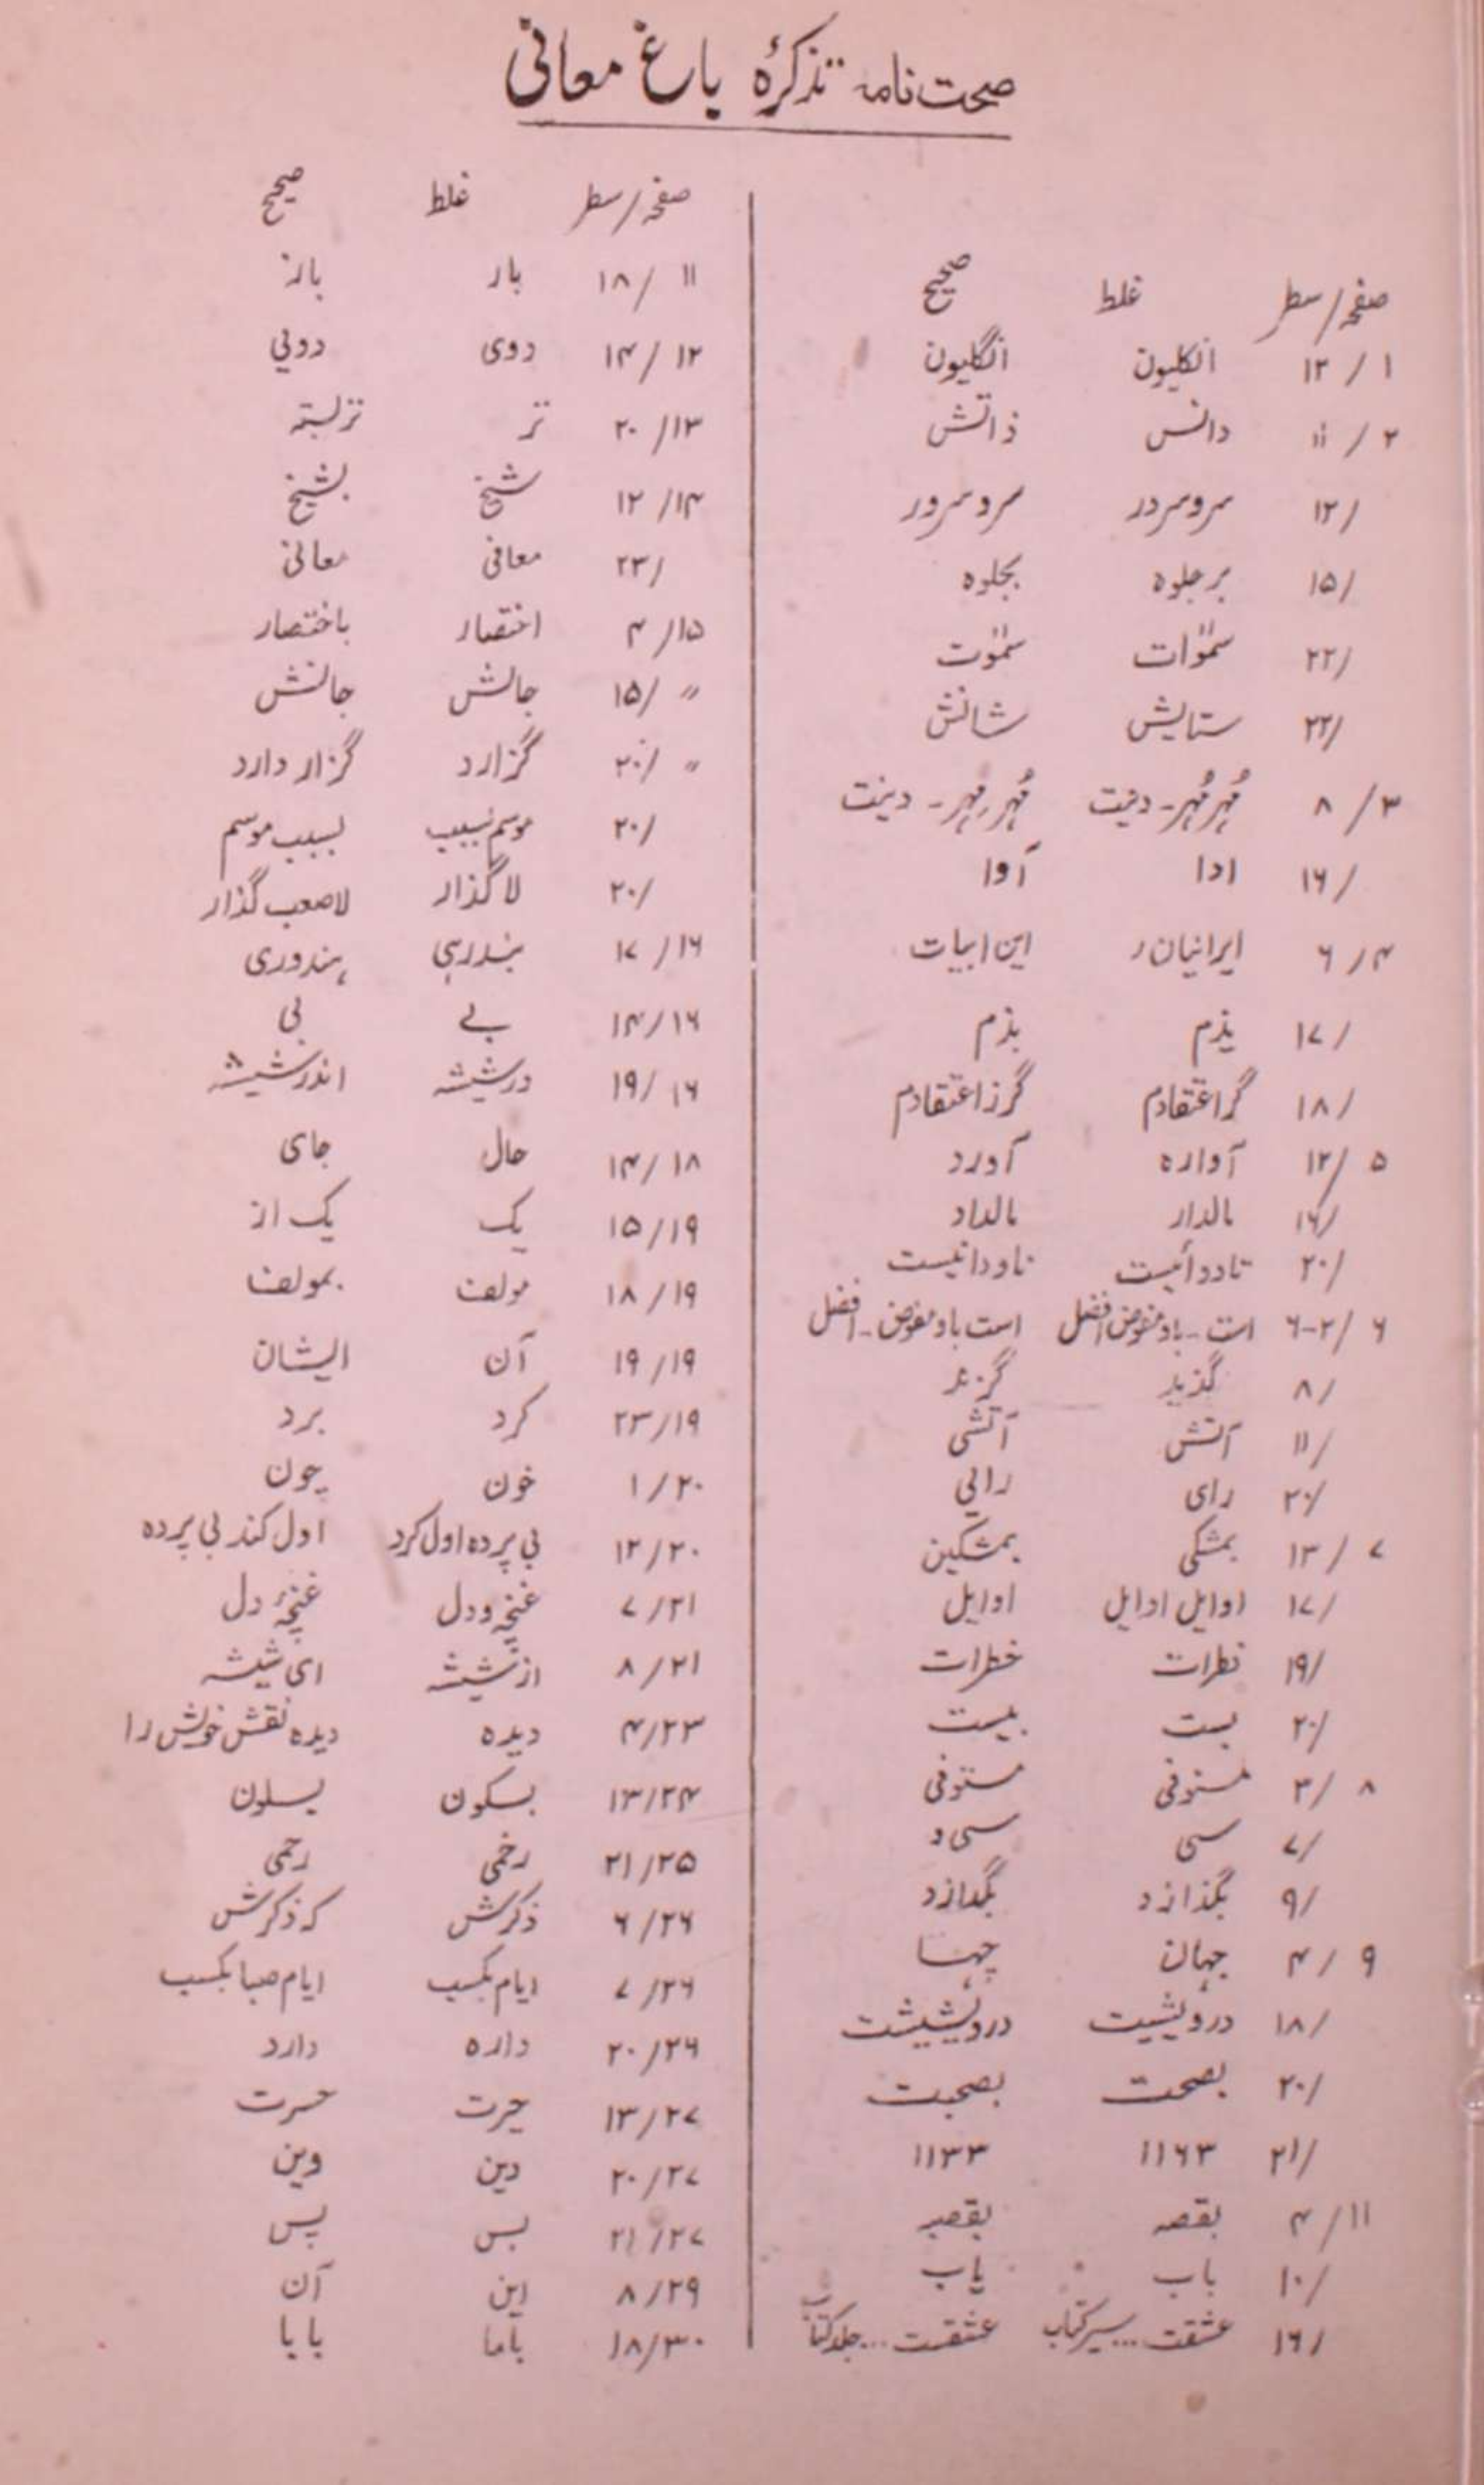 صحت نامہ تذکرۂ باغ معانی
صفحہ/سطر غلط صحیح
۱ / ۱۳ انکلیون انگلیون
۲ / ۱۱ دانس ذاتش
/۱۲ سروسردر سروسرور
/۱۵ برجلوہ بجلوہ
/۲۲ سمٰوٰات سمٰوٰت
/۲۲ ستایش شانش
۳ / ۸ مُہر مُہر - دنیت مُہر مِہر - دینت
/۱۶ ادا آوا
۴ / ۶ ایرانیان ر این ابیات
/۱۷ یذم بذم
/۱۸ گر اعتقادم گرز اعتقادم
۵ /۱۲ آوارہ آورد
/۱۶ مالدار مالداد
/۲۰ تادوانیست ناودانیست
۶ /۲-۶ است - باد مفوض افضل است باد مفوض - افضل
/۸ گذید گزید
/۱۱ آتش آتشی
/۲۰ رای رایی
۷ /۱۳ بمشکی بمشکین
/۱۷ اوایل اوایل اوایل
/۱۹ نطرات خطرات
/۲۰ بست بیست
۸ /۳ مستوفی مستوفی
/۷ سی سی و
/۹ بگذازد بگدازد
۹ / ۴ جہان جہا
/۱۸ درویشیت درویشیست
/۲۰ بصحت بصحبت
/۲۱ ۱۱۶۳ ۱۱۳۳
۱۱ / ۴ بقصہ بقصبہ
/۱۰ باب یاب
/۱۶ عشقت ... سیر کتاب عشقست ... جلد کتاب
صفحہ/سطر غلط صحیح
۱۱ /۱۸ بار باز
۱۲ /۱۴ روی رویی
۱۳/ ۲۰ تر تربستہ
۱۴/ ۱۲ شیخ بشیخ
/۲۳ معافی معانی
۱۵/ ۴ اختصار باختصار
〃 /۱۵ جالش جانش
〃 /۲۰ گزارد گزار دارد
/۲۰ موسم بسبب بسبب موسم
/۲۰ لاگذار لاصعب گذار
۱۶/ ۱۷ بندرہی ہندوری
۱۶/۱۴ بے بی
۱۶ /۱۹ درشیشہ اندر شیشہ
۱۸/۱۴ حال جای
۱۹/۱۵ یک یک از
۱۹/۱۸ مولف بمولف
۱۹/۱۹ آن ایشان
۱۹/۲۳ کرد برد
۲۰/۱ خون چون
۲۰/۱۲ بی پردہ اول کرد اول کند بی پردہ
۲۱/۷ غنچہ و دل غنچۂ دل
۲۱/۸ از شیشہ ای شیشہ
۲۳/۴ دیدہ دیدہ نقش خویش را
۲۴/۱۳ بسکون یسلون
۲۵/۲۱ رخمی رحمی
۲۶/۶ ذکرش کہ ذکرش
۲۶/۷ ایام بکسب ایام صبا بکسب
۲۶/۲۰ دارہ دارد
۲۷/۱۳ حیرت حسرت
۲۷/۲۰ دین وین
۲۷/۲۱ بس پس
۲۹/۸ این آن
۳۰/۱۸ باما بابا